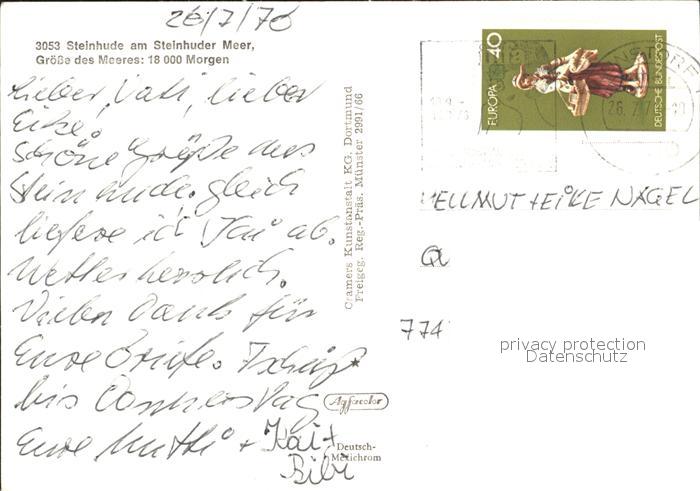 26/7/76
3053 Steinhude am Steinhuder Meer,
Größe des Meeres: 18 000 Morgen
Lieber Vati, lieber
Eike!
Schöne Grüße aus
Steinhude. gleich
liefere ich Kai ab.
Wetter herrlich.
Vielen Dank für
Eure Briefe. Tschüß
bis Donnerstag
Eure Mutti + Kai +
Bibi
Cramers Kunstanstalt KG. Dortmund
Freigeg. Reg.-Präs. Münster 2991/66
Agfacolor
Deutsch-
Metichrom
EUROPA 40
DEUTSCHE BUNDESPOST
HELLMUT + EIKE NAGEL
774
privacy protection
Datenschutz